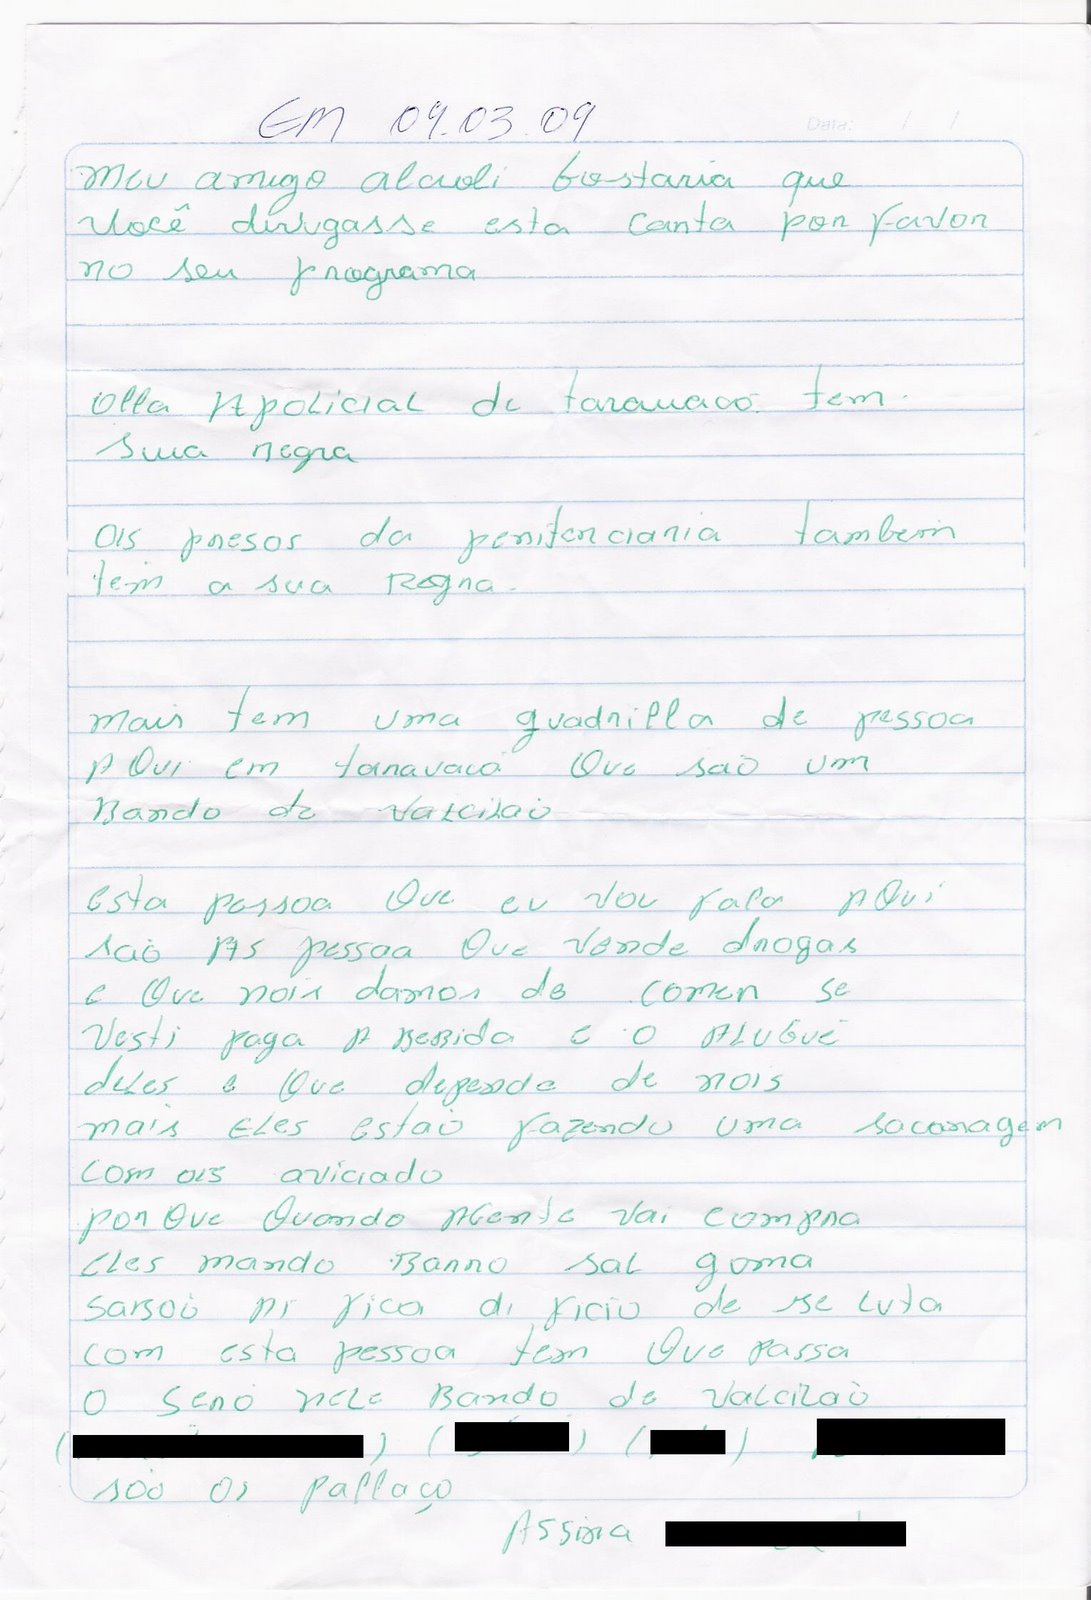 EM 09.03.09
Data: / /
Meu amigo alcioli Gostaria que
Você divugasse esta Carta por favor
no seu programa
Olla A policial de tarauaco. tem
sua regra
Ois presos da penitenciaria tambem
tem a sua Regra.
mais tem uma quadrilla de pessoa
AQui em taravacá Que saõ um
Bando de Valcilaõ
esta pessoa Que eu vou fala AQui
saõ As pessoa Que vende drogas
e Que nois damos de comer se
Vesti paga A BeBida e o ALuGuê
deles e Que depende de nois
mais Eles estaõ fazendo uma sacanagem
com ois aviciado
porQue Quando AGente Vai compra
Eles mando Barro saL goma
sarsoõ Ai fica di ficio de se Luta
com esta pessoa tem Que Passa
o Serõ neLe Bando de ValciLaõ
( ) ( ) ( )
sõo os Pallaço
Assina